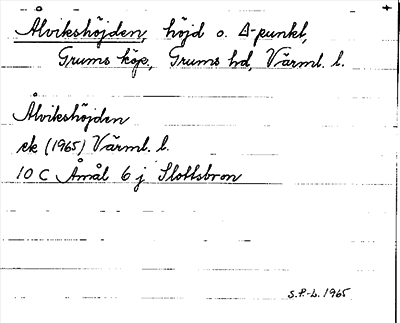 Ålvikshöjden, höjd o. Δ-punkt,
Grums köp., Grums hd, Värml. l.
Ålvikshöjden
ek (1965) Värml. l.
10 C Åmål 6 j Slottsbron
S.P.-L. 1965